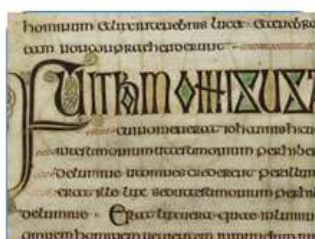 hominum et lux in tenebris lucet et tenebrae
eam non conpraehenderunt
FUIT HOMO MISSUS A
cui nomen erat iohannis hic
in testimonium ut testimonium perhiberet
de lumine ut omnes crederent per illum
erat ille lux sed ut testimonium perhi
de lumine Erat lux uera quae inlumin
omnem hominem uenientem in mundum in mu